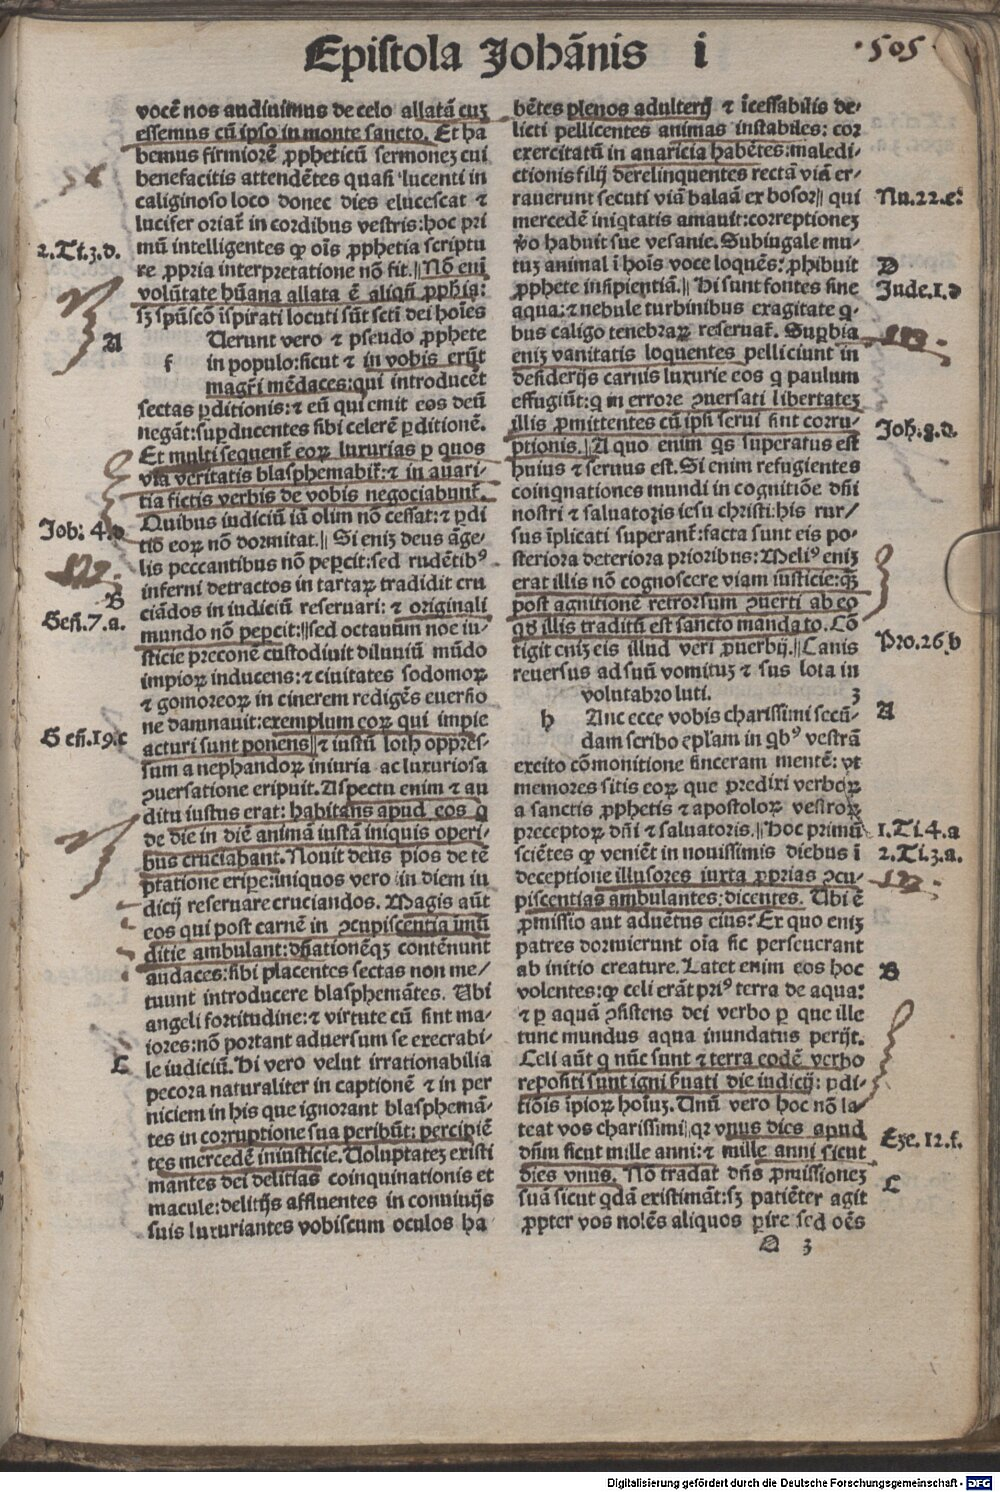 Epistola Johānis i
·505·
vocē nos audiuimus de celo allatā cuꝫ
essemus cū ipso in monte sancto. Et ha
bemus firmiorē ꝓpheticū sermoneꝫ cui
benefacitis attendētes quasi lucenti in
caliginoso loco donec dies elucescat ⁊
lucifer oriat̄ in cordibus vestris: hoc pri
mū intelligentes ꝙ oīs ꝓphetia scriptu
2.Ti.3.d.
re ꝓpria interpretatione nō fit.‖Nō enī
volūtate hūana allata ē aliqn̄ ꝓph̄ia:
sꝫ spūscō īspirati locuti sūt scti dei hoīes
A
f
Uerunt vero ⁊ pseudo ꝓphete
in populo: sicut ⁊ in vobis erūt
magr̄i mēdaces: qui introducēt
sectas ꝑditionis: ⁊ eū qui emit eos deū
negāt: suꝑducentes sibi celerē ꝑditionē.
Et multi sequent̄ eoꝝ luxurias ꝑ quos
via veritatis blasphemabit̄: ⁊ in auari-
tia fictis verbis de vobis negociabunt̄.
Quibus iudiciū iā olim nō cessat: ⁊ ꝑdi
Job: 4.d
tio eoꝝ nō dormitat.‖ Si eniꝫ deus āge-
lis peccantibus nō peꝑcit: sed rudētibꝰ
inferni detractos in tartaꝝ tradidit cru
B
ciādos in iudiciū reseruari: ⁊ originali
Geñ.7.a.
mundo nō peꝑcit:‖sed octauum noe iu-
sticie preconē custodiuit diluuiū mūdo
impioꝝ inducens: ⁊ ciuitates sodomoꝝ
⁊ gomoreoꝝ in cinerem redigēs euersio
ne damnauit: exemplum eoꝝ qui impie
Geñ.19.c
acturi sunt ponens‖⁊ iustū loth oppres-
sum a nephandoꝝ iniuria ac luxuriosa
ꝯuersatione eripuit. Aspectu enim ⁊ au
ditu iustus erat: habitans apud eos q
de die in diē animā iustā iniquis operi-
bus cruciabant. Nouit deus pios de tē
ptatione eripe: iniquos vero in diem iu
dicij reseruare cruciandos. Magis aūt
eos qui post carnē in ꝯcupiscentia īmū
ditie ambulant: dn̄ationēqꝫ contēnunt
audaces: sibi placentes sectas non me/
tuunt introducere blasphemātes. Ubi
angeli fortitudine: ⁊ virtute cū sint ma-
iores: nō portant aduersum se execrabi-
C
le iudiciū. Hi vero velut irrationabilia
pecora naturaliter in captionē ⁊ in per
niciem in his que ignorant blasphemā-
tes in corruptione sua peribūt: percipiē
tes mercedē iniusticie. Voluptateꝫ existi
mantes dei delitias coinquinationis et
macule: delitijs affluentes in conuiuijs
suis luxuriantes vobiscum oculos ha
bētes plenos adulterij ⁊ īcessabilis de-
licti pellicentes animas instabiles: cor
exercitatū in auaricia habētes: maledi-
ctionis filij derelinquentes rectā viā er-
rauerunt secuti viā balaā ex bosor‖ qui
Nu.22.e.
mercedē iniqtatis amauit: correptioneꝫ
ꝟo habuit sue vesanie. Subiugale mu-
tuꝫ animal ī hoīs voce loquēs: ꝓhibuit
D
ꝓphete insipientiā.‖ Hi sunt fontes sine
Jude.1.d
aqua: ⁊ nebule turbinibus exagitate q-
bus caligo tenebraꝝ reseruat̄. Suꝑbia
eniꝫ vanitatis loquentes pelliciunt in
desiderijs carnis luxurie eos q paulum
effugiūt: q in errore ꝯuersati libertateꝫ
illis ꝓmittentes cū ipsi serui sint corru-
ptionis.‖ A quo enim qs superatus est
Joh.8.d.
huius ⁊ seruus est. Si enim refugientes
coinqnationes mundi in cognitiōe dn̄i
nostri ⁊ saluatoris iesu christi: his rur/
sus īplicati superant̄: facta sunt eis po-
steriora deteriora prioribus: Meliꝰ eniꝫ
erat illis nō cognoscere viam iusticie: qꝫ
post agnitionē retrorsum ꝯuerti ab eo
qd illis traditū est sancto mandato. Cō
tigit eniꝫ eis illud veri ꝓuerbij.‖Canis
Pro.26.b
reuersus ad suū vomituꝫ ⁊ sus lota in
volutabro luti. 3
A
h
Anc ecce vobis charissimi secū-
dam scribo epl̄am in qbꝰ vestrā
excito cōmonitione sinceram mentē: vt
memores sitis eoꝝ que predixi verboꝝ
a sanctis ꝓphetis ⁊ apostoloꝝ vestroꝝ
preceptoꝝ dn̄i ⁊ saluatoris.‖Hoc primū
1.Ti.4.a
sciētes ꝙ veniēt in nouissimis diebus ī
2.Ti.3.a.
deceptione illusores iuxta ꝓprias ꝯcu-
piscentias ambulantes: dicentes. Ubi ē
ꝓmissio aut aduētus eius? Ex quo eniꝫ
patres dormierunt oīa sic perseuerant
ab initio creature. Latet enim eos hoc
B
volentes: ꝙ celi erāt priꝰ terra de aqua:
⁊ ꝑ aquā ꝯsistens dei verbo ꝑ que ille
tunc mundus aqua inundatus perijt.
Celi aūt q nūc sunt ⁊ terra eodē verbo
repositi sunt igni ẜuati die iudicij: ꝑdi-
tiōis īpioꝝ hoīuꝫ. Unū vero hoc nō la-
teat vos charissimi‖qꝛ vnus dies apud
Eze.12.f.
dn̄m sicut mille anni: ⁊ mille anni sicut
dies vnus. Nō tradat̄ dn̄s ꝓmissioneꝫ
C
suā sicut qdā existimāt: sꝫ patiēter agit
ꝓpter vos nolēs aliquos ꝑire sed oēs
Q 3
Digitalisierung gefördert durch die Deutsche Forschungsgemeinschaft - DFG